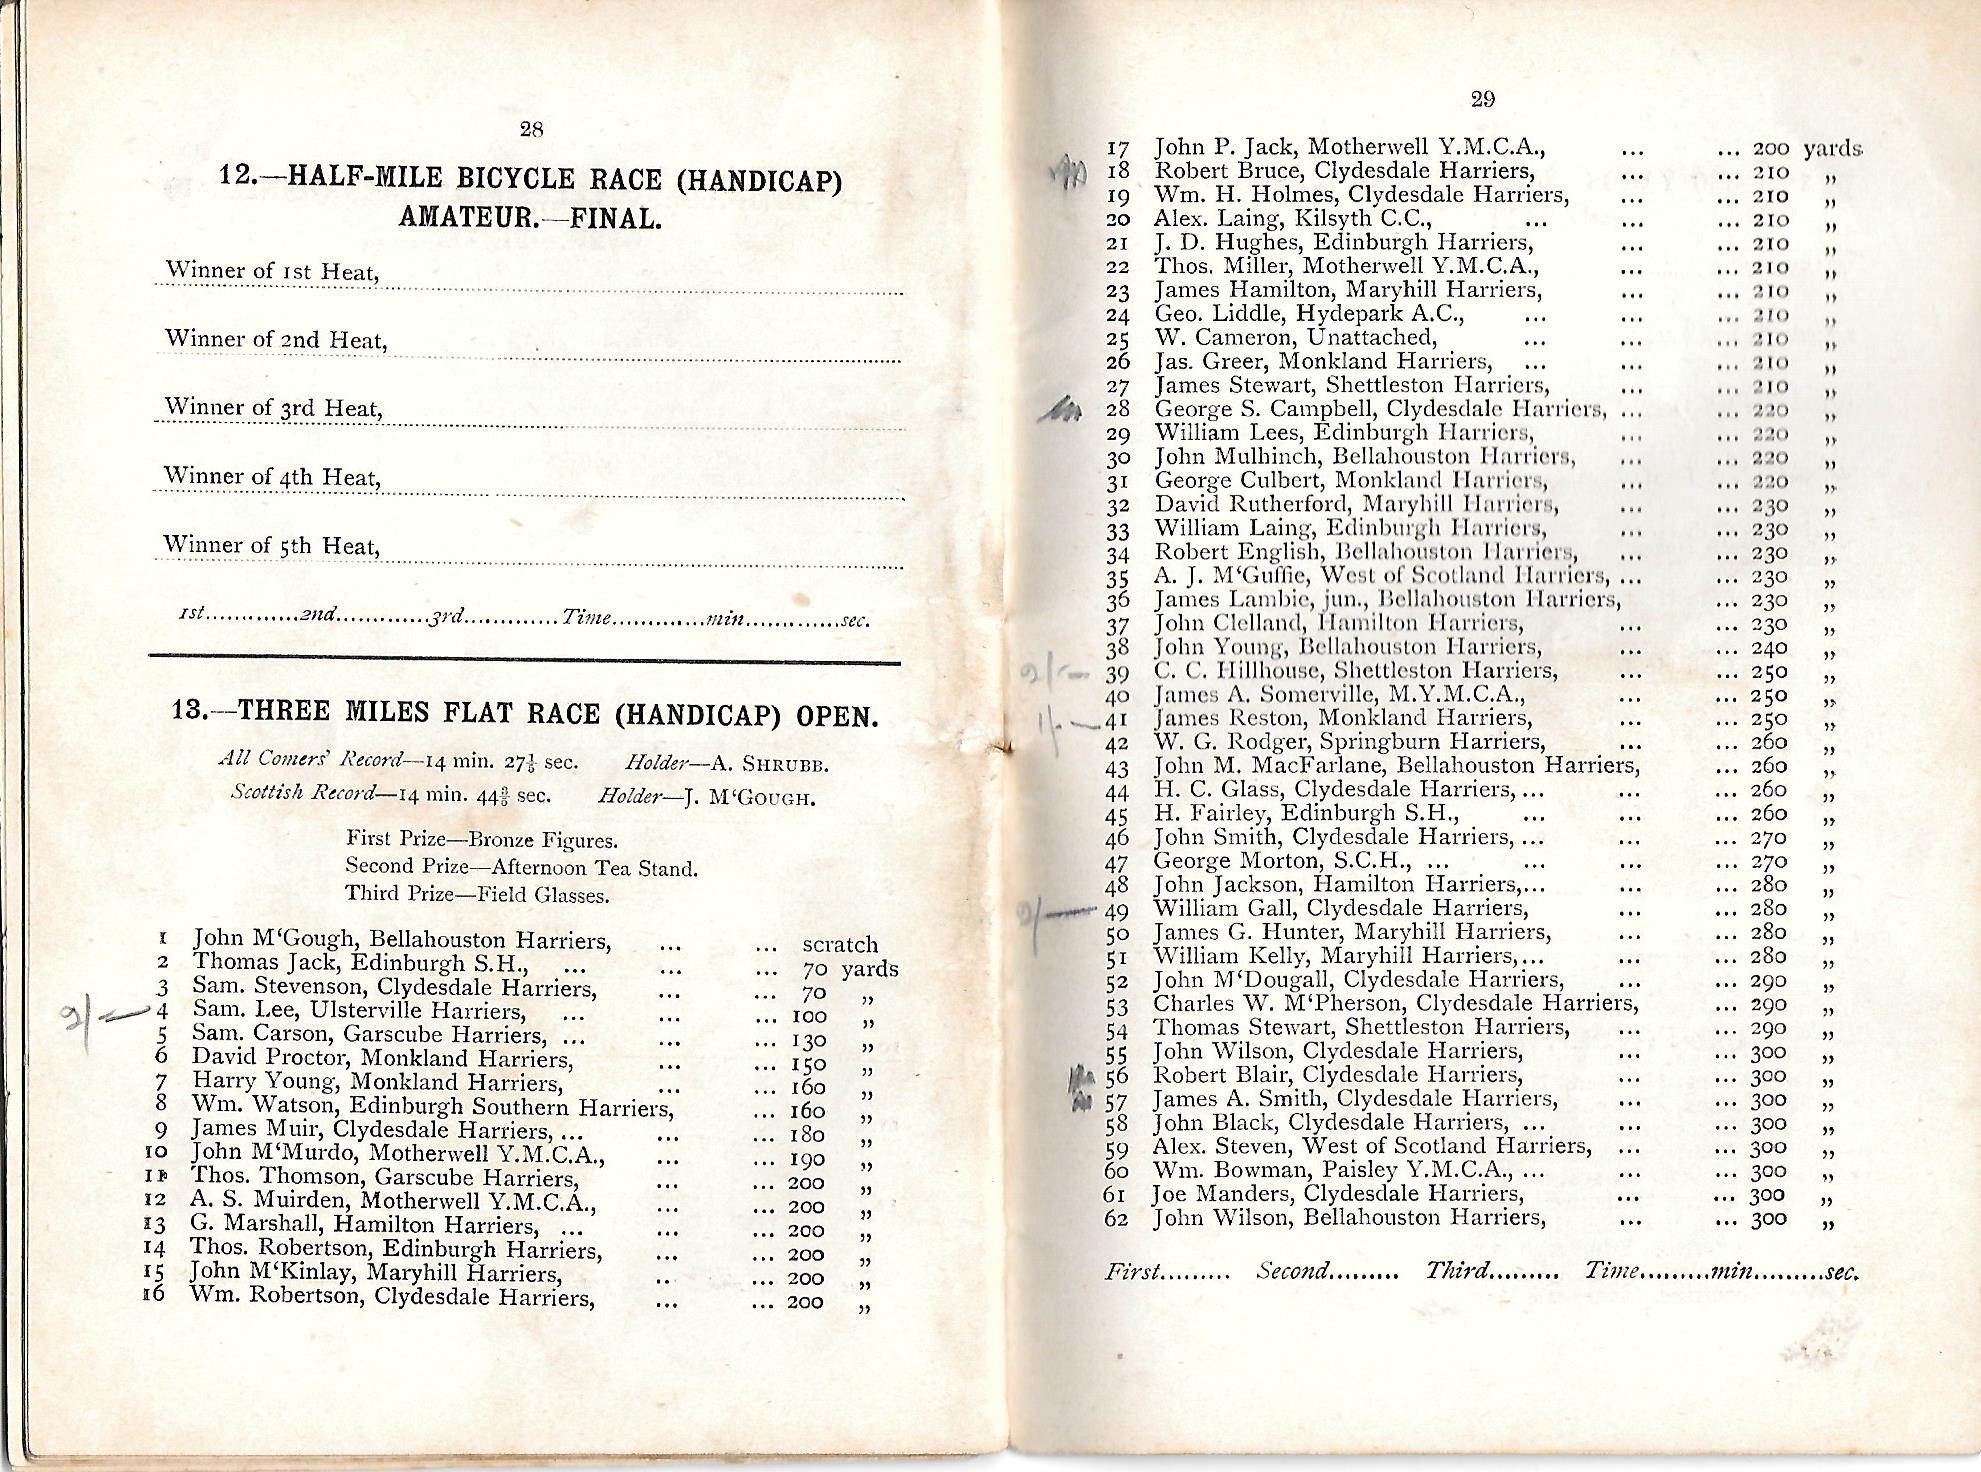 28
12.—HALF-MILE BICYCLE RACE (HANDICAP)
AMATEUR.—FINAL.
Winner of 1st Heat,
Winner of 2nd Heat,
Winner of 3rd Heat,
Winner of 4th Heat,
Winner of 5th Heat,
1st.............2nd.............3rd.............Time.............min.............sec.
13.—THREE MILES FLAT RACE (HANDICAP) OPEN.
All Comers' Record—14 min. 27⅕ sec. Holder—A. SHRUBB.
Scottish Record—14 min. 44⅗ sec. Holder—J. M'GOUGH.
First Prize—Bronze Figures.
Second Prize—Afternoon Tea Stand.
Third Prize—Field Glasses.
1 John M'Gough, Bellahouston Harriers, ... ... scratch
2 Thomas Jack, Edinburgh S.H., ... ... ... 70 yards
3 Sam. Stevenson, Clydesdale Harriers, ... ... 70 „
2/- 4 Sam. Lee, Ulsterville Harriers, ... ... ... 100 „
5 Sam. Carson, Garscube Harriers, ... ... ... 130 „
6 David Proctor, Monkland Harriers, ... ... 150 „
7 Harry Young, Monkland Harriers, ... ... 160 „
8 Wm. Watson, Edinburgh Southern Harriers, ... 160 „
9 James Muir, Clydesdale Harriers, ... ... ... 180 „
10 John M'Murdo, Motherwell Y.M.C.A., ... ... 190 „
11 Thos. Thomson, Garscube Harriers, ... ... 200 „
12 A. S. Muirden, Motherwell Y.M.C.A., ... ... 200 „
13 G. Marshall, Hamilton Harriers, ... ... ... 200 „
14 Thos. Robertson, Edinburgh Harriers, ... ... 200 „
15 John M'Kinlay, Maryhill Harriers, .. ... 200 „
16 Wm. Robertson, Clydesdale Harriers, ... ... 200 „
29
17 John P. Jack, Motherwell Y.M.C.A., ... ... 200 yards
18 Robert Bruce, Clydesdale Harriers, ... ... 210 „
19 Wm. H. Holmes, Clydesdale Harriers, ... ... 210 „
20 Alex. Laing, Kilsyth C.C., ... ... ... 210 „
21 J. D. Hughes, Edinburgh Harriers, ... ... 210 „
22 Thos. Miller, Motherwell Y.M.C.A., ... ... 210 „
23 James Hamilton, Maryhill Harriers, ... ... 210 „
24 Geo. Liddle, Hydepark A.C., ... ... ... 210 „
25 W. Cameron, Unattached, ... ... ... 210 „
26 Jas. Greer, Monkland Harriers, ... ... ... 210 „
27 James Stewart, Shettleston Harriers, ... ... 210 „
28 George S. Campbell, Clydesdale Harriers, ... ... 220 „
29 William Lees, Edinburgh Harriers, ... ... 220 „
30 John Mulhinch, Bellahouston Harriers, ... ... 220 „
31 George Culbert, Monkland Harriers, ... ... 220 „
32 David Rutherford, Maryhill Harriers, ... ... 230 „
33 William Laing, Edinburgh Harriers, ... ... 230 „
34 Robert English, Bellahouston Harriers, ... ... 230 „
35 A. J. M'Guffie, West of Scotland Harriers, ... ... 230 „
36 James Lambie, jun., Bellahouston Harriers, ... 230 „
37 John Clelland, Hamilton Harriers, ... ... 230 „
38 John Young, Bellahouston Harriers, ... ... 240 „
2/- 39 C. C. Hillhouse, Shettleston Harriers, ... ... 250 „
40 James A. Somerville, M.Y.M.C.A., ... ... 250 „
1/- 41 James Reston, Monkland Harriers, ... ... 250 „
42 W. G. Rodger, Springburn Harriers, ... ... 260 „
43 John M. MacFarlane, Bellahouston Harriers, ... 260 „
44 H. C. Glass, Clydesdale Harriers, ... ... ... 260 „
45 H. Fairley, Edinburgh S.H., ... ... ... 260 „
46 John Smith, Clydesdale Harriers, ... ... ... 270 „
47 George Morton, S.C.H., ... ... ... ... 270 „
48 John Jackson, Hamilton Harriers,... ... ... 280 „
2/- 49 William Gall, Clydesdale Harriers, ... ... 280 „
50 James G. Hunter, Maryhill Harriers, ... ... 280 „
51 William Kelly, Maryhill Harriers,... ... ... 280 „
52 John M'Dougall, Clydesdale Harriers, ... ... 290 „
53 Charles W. M'Pherson, Clydesdale Harriers, ... 290 „
54 Thomas Stewart, Shettleston Harriers, ... ... 290 „
55 John Wilson, Clydesdale Harriers, ... ... 300 „
56 Robert Blair, Clydesdale Harriers, ... ... 300 „
57 James A. Smith, Clydesdale Harriers, ... ... 300 „
58 John Black, Clydesdale Harriers, ... ... ... 300 „
59 Alex. Steven, West of Scotland Harriers, ... ... 300 „
60 Wm. Bowman, Paisley Y.M.C.A., ... ... ... 300 „
61 Joe Manders, Clydesdale Harriers, ... ... 300 „
62 John Wilson, Bellahouston Harriers, ... ... 300 „
First......... Second......... Third......... Time.........min.........sec.